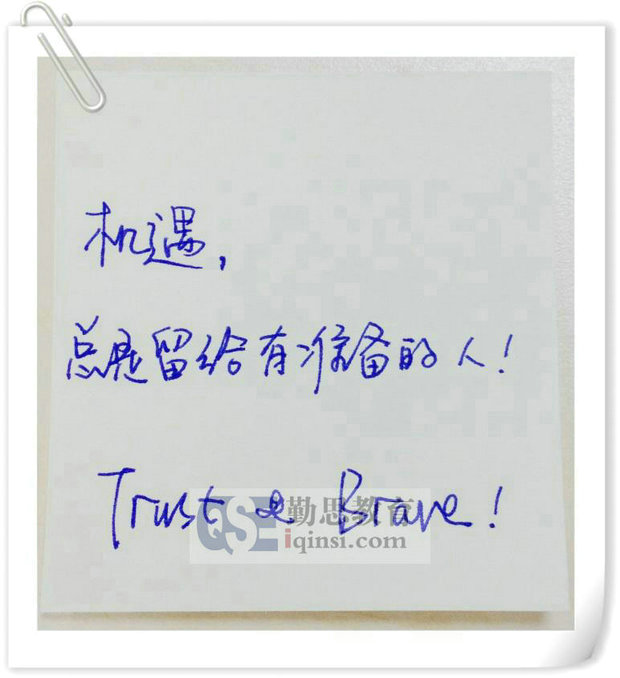 机遇,
总是留给有准备的人!
Trust & Brave!
QSE 勤思教育
iqinsi.com